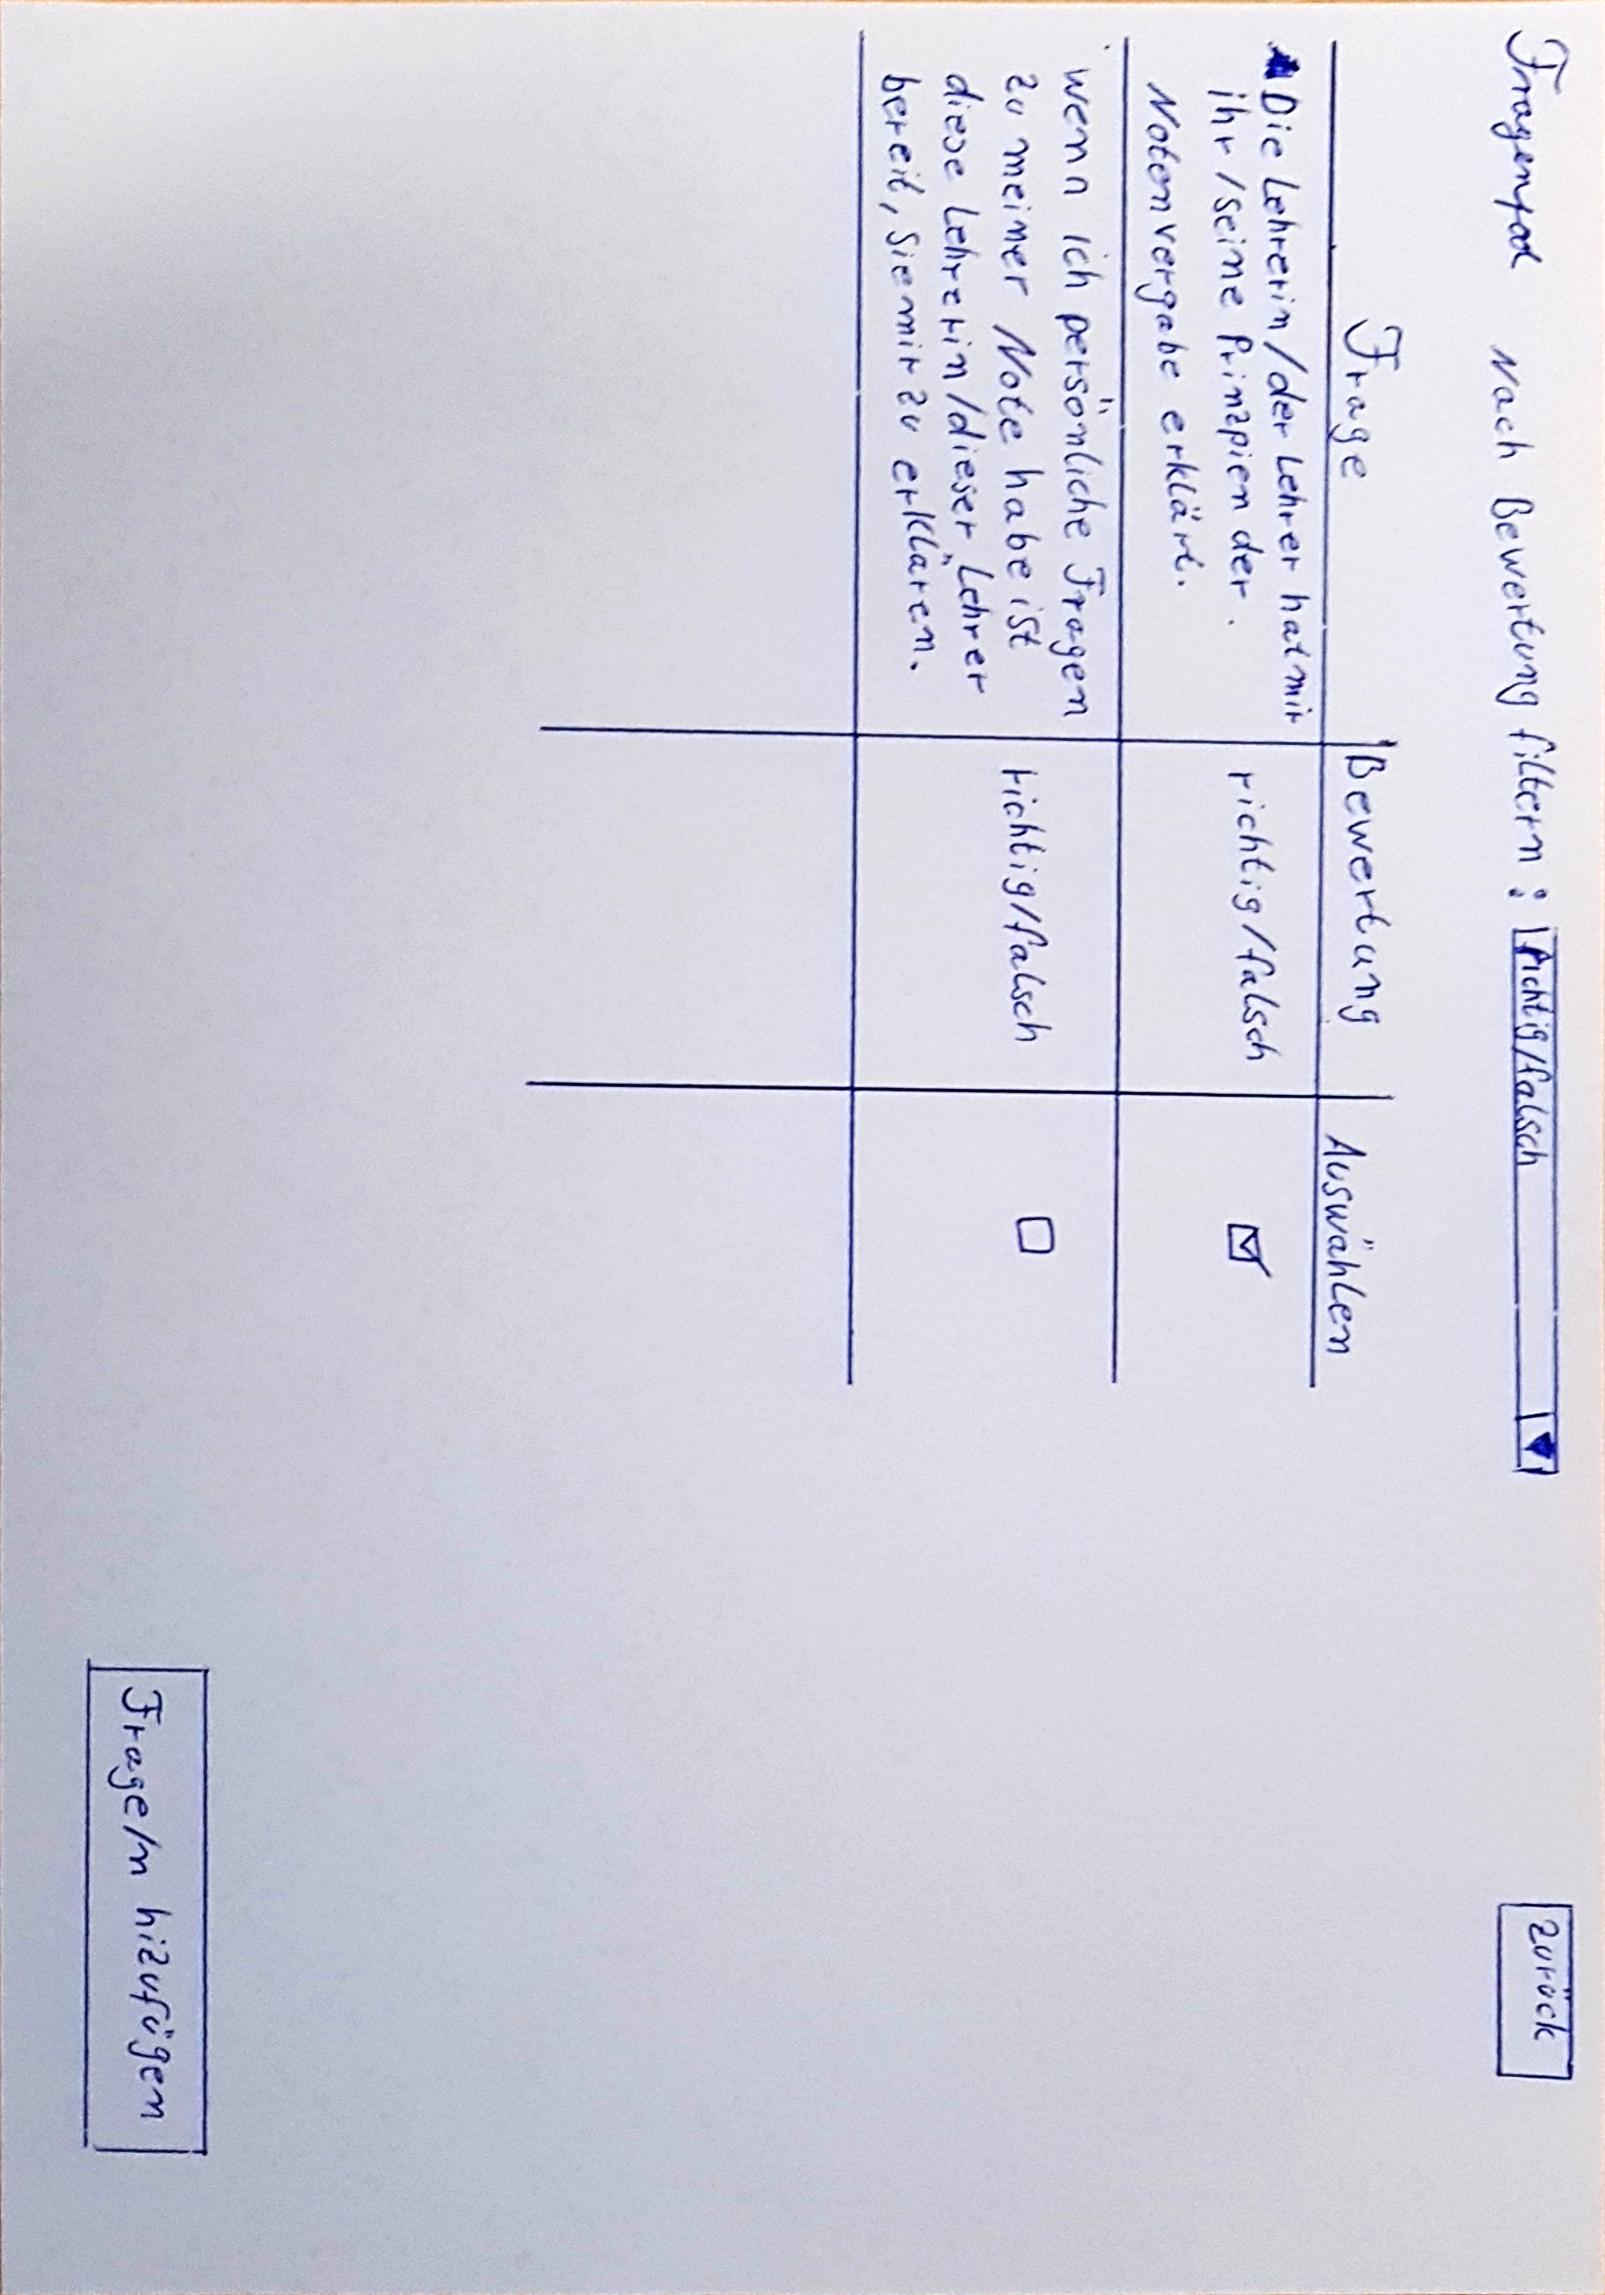 Nach Bewertung filtern: Richtig/falsch
zurück
Frage Bewertung Auswählen
Die Lehrerin/der Lehrer hat mir
ihr/seine Prinzpien der
Notenvergabe erklärt.
richtig/falsch
wenn ich persönliche Fragen
zu meiner Note habe ist
diese Lehrerin/dieser Lehrer
bereit, sie mir zu erklären.
richtig/falsch
Frage/n hizufügen